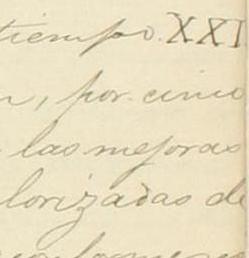 tiempo. XXI
, por cinco
las mejoras
lorizadas de